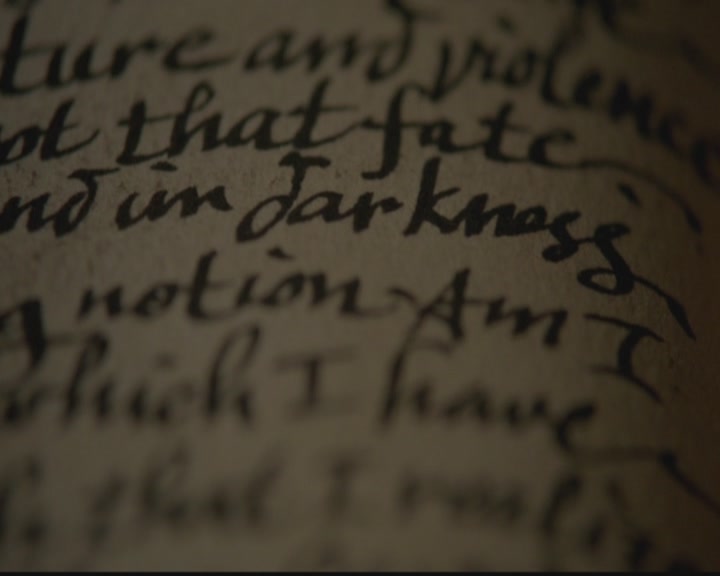 ture and violence
ot that fate
nd in darkness
g notion Am I
which I have
that I